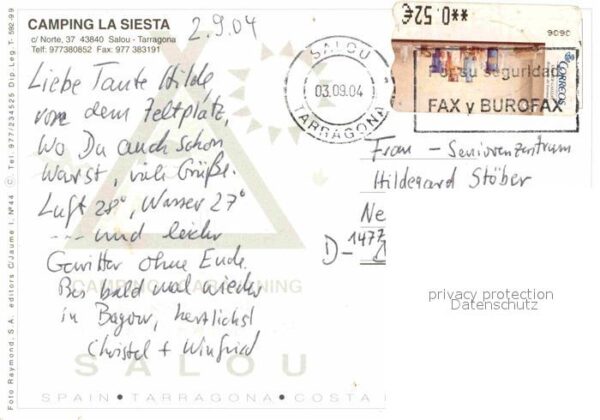 CAMPING LA SIESTA
c/ Norte, 37 43840 Salou - Tarragona
Telf: 977380852 Fax: 977 383191
2.9.04
Liebe Tante Hilde
von dem Zeltplatz,
wo Du auch schon
warst, viele Grüße.
Luft 28°, Wasser 27°
--- und leider
Gewitter ohne Ende.
Bis bald mal wieder
in Bagow, herzlichst
Christel + Winfried
CAMPING CARAVANING
SALOU
SPAIN • TARRAGONA • COSTA
Foto Raymond, S.A. editors C/Jaume I, Nº 44 © Tel. 977/234525 Dip. Leg. T- 592-99
**0.52€
9090
CORREOS
SALOU
03.09.04
TARRAGONA
Por su seguridad
FAX y BUROFAX
Frau - Seniorenzentrum
Hildegard Stöber
Ne
D-1477
privacy protection
Datenschutz